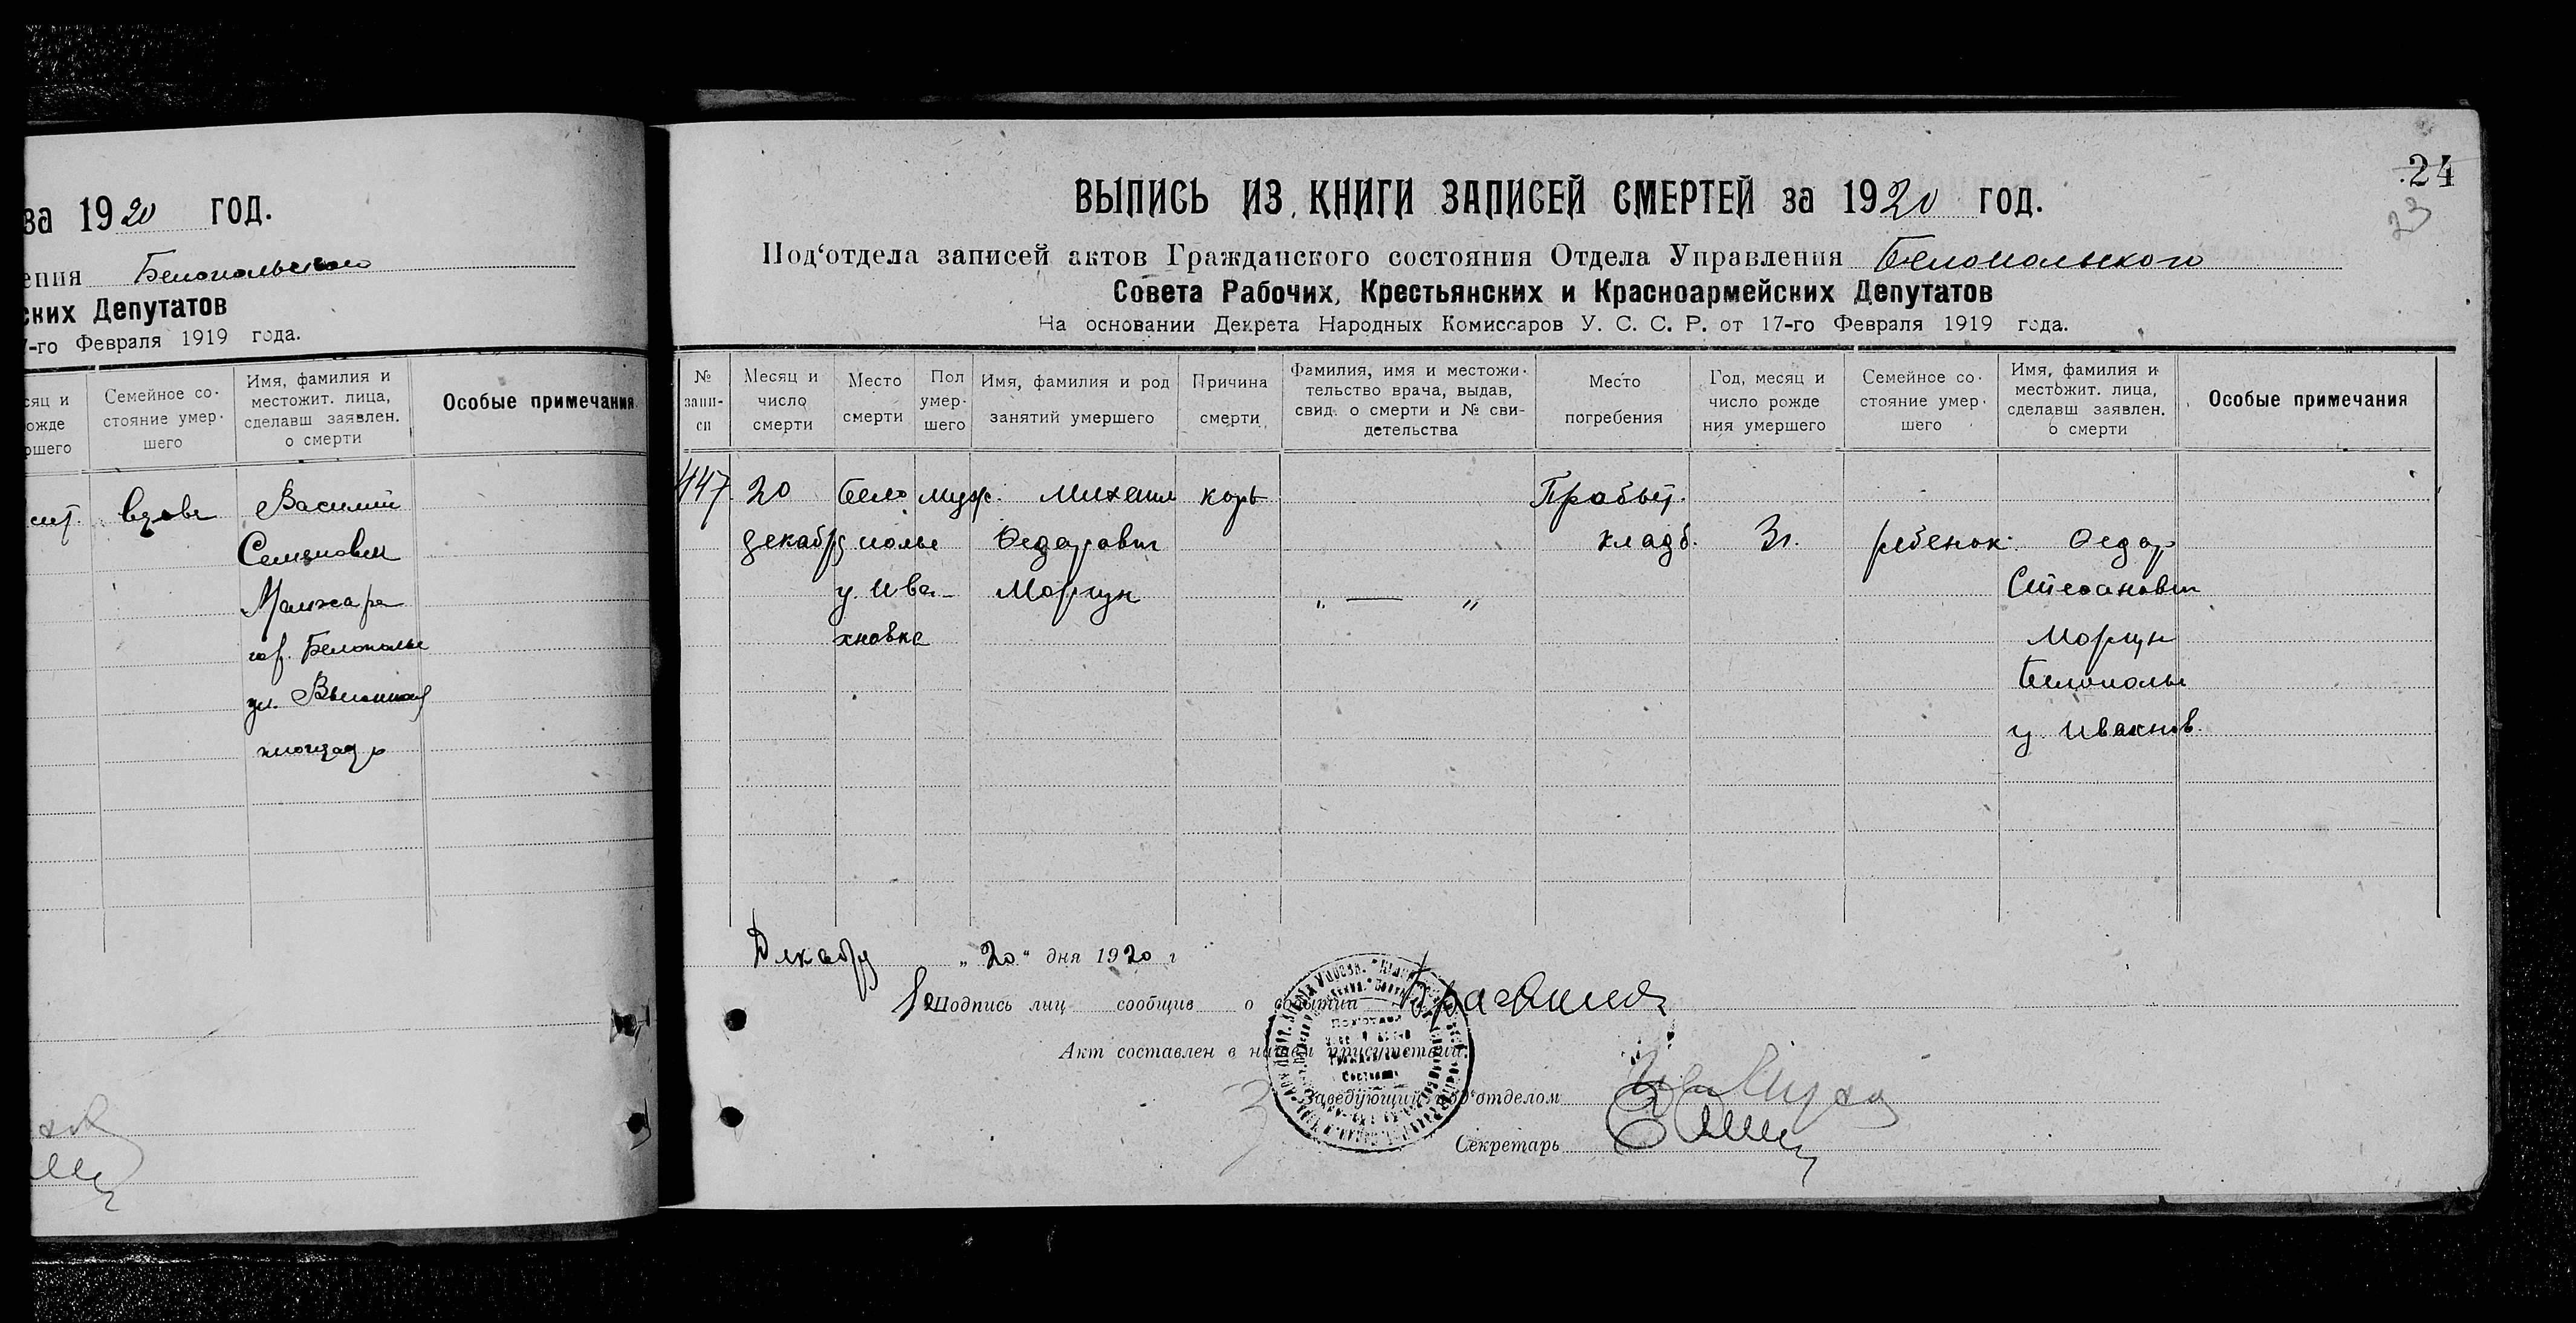 за 1920 ГОД.
ения Белопольского
ских Депутатов
7-го Февраля 1919 года.
сяц и
ожде
ршего
Семейное со-
стояние умер-
шего
Имя, фамилия и
местожит. лица,
сделавш заявлен.
о смерти
Особые примечания
вдова
Василий
Семенович
Манжара
гор. Белополье
ул.
площадь
24
23
ВЫПИСЬ ИЗ КНИГИ ЗАПИСЕЙ СМЕРТЕЙ за 1920 год.
Под‘отдела записей актов Гражданского состояния Отдела Управления Белопольского
Совета Рабочих, Крестьянских и Красноармейских Депутатов
На основании Декрета Народных Комиссаров У. С. С. Р. от 17-го Февраля 1919 года.
№
запи-
си
Месяц и
число
смерти
Место
смерти
Пол
умер-
шего
Имя, фамилия и род
занятий умершего
Причина
смерти
Фамилия, имя и местожи-
тельство врача, выдав,
свид. о смерти и № сви-
детельства
Место
погребения
Год, месяц и
число рожде
ния умершего
Семейное со-
стояние умер-
шего
Имя, фамилия и
местожит. лица,
сделавш заявлен.
о смерти
Особые примечания
447
20
декабря
Бело
полье
у. Ива-
хновка
муж.
Михаил
Федорович
Моргун
корь
„ — „
кладб.
3 г.
ребенок
Федор
Стефанович
Моргун
Белополье
у. Ивахнов.
Декабря „20“ дня 1920 г
Подпись лиц сообщив о событии
Акт составлен в нашем присутствии:
Заведующий под‘отделом
Секретарь